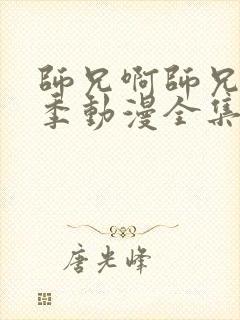 師兄啊師兄
季動漫全集
唐光峰